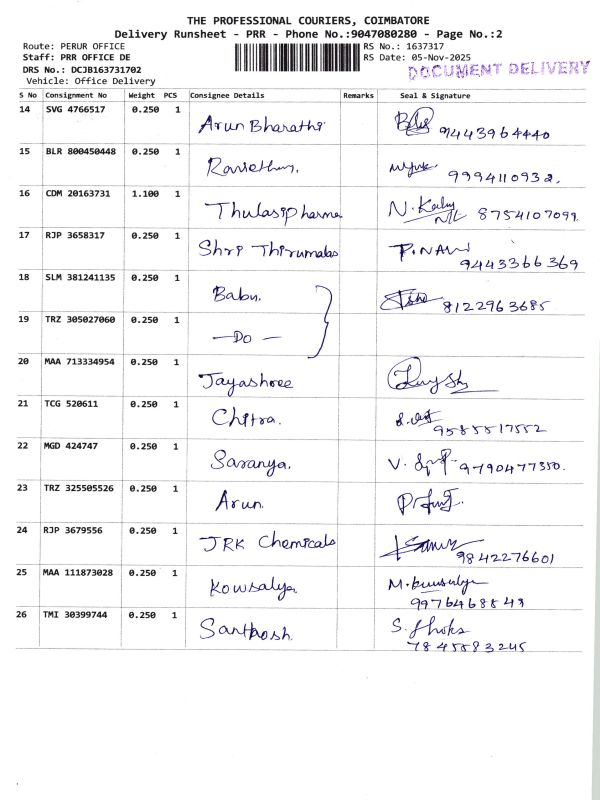 THE PROFESSIONAL COURIERS, COIMBATORE
Delivery Runsheet - PRR - Phone No.:9047080280 - Page No.:2
Route: PERUR OFFICE
Staff: PRR OFFICE DE
DRS No.: DCJB163731702
Vehicle: Office Delivery
RS No.: 1637317
RS Date: 05-Nov-2025
DOCUMENT DELIVERY
S No Consignment No Weight PCS Consignee Details Remarks Seal & Signature
14 SVG 4766517 0.250 1 Arun Bharathi 9443964440
15 BLR 800450448 0.250 1 9994110932.
16 CDM 20163731 1.100 1 Thulasipharma N. 8754107099
17 RJP 3658317 0.250 1 Shri Thirumalas P. NAVI 9443366369
18 SLM 381241135 0.250 1 Babu. 8122963685
19 TRZ 305027060 0.250 1 —Do—
20 MAA 713334954 0.250 1 Jayashree
21 TCG 520611 0.250 1 Chitra. 9585517552
22 MGD 424747 0.250 1 Saranya. V. 9790477350.
23 TRZ 325505526 0.250 1 Arun.
24 RJP 3679556 0.250 1 JRK Chemicals 9842276601
25 MAA 111873028 0.250 1 Kowsalya M. 9976468843
26 TMI 30399744 0.250 1 Santhosh S. 7845583245